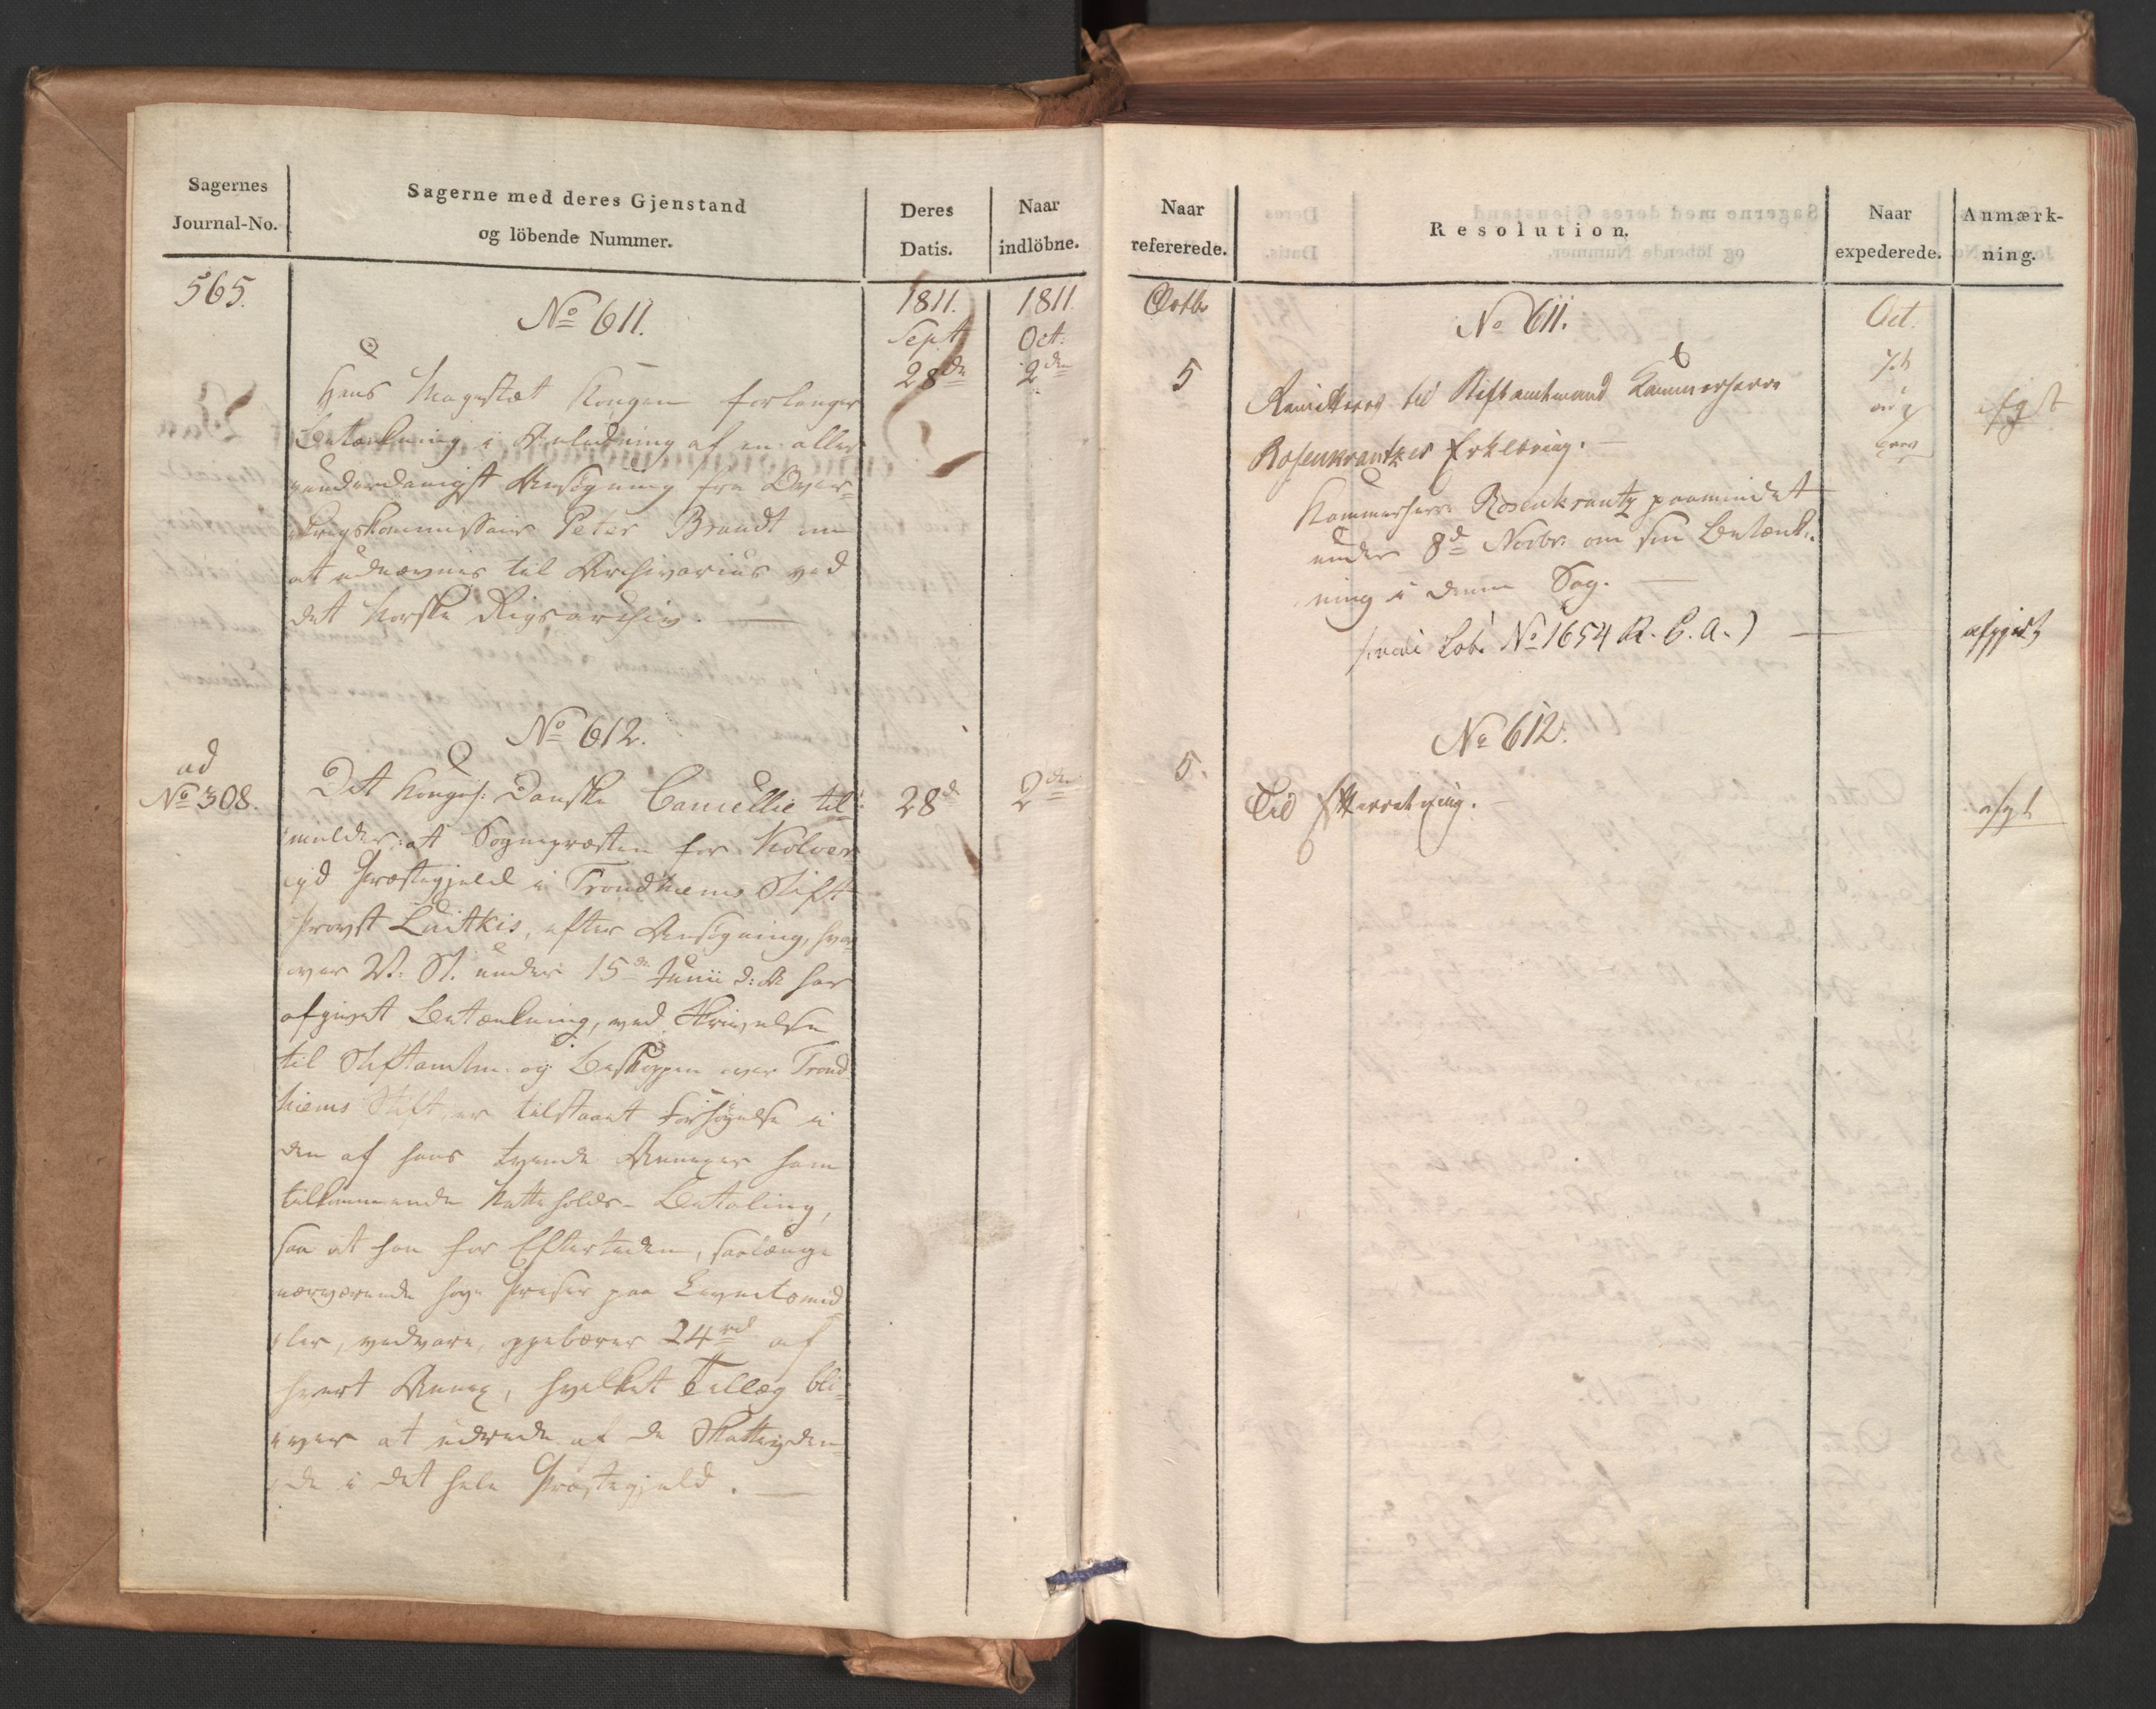 Sagernes
Journal-No.
Sagerne med deres Gjenstand
og löbende Nummer.
Deres
Datis.
Naar
indlöbne.
565.
No 611.
1811.
Sept
28de
1811
Oct:
2den
Hans Magestæt Kongen forlanger
Betænkning i Anledning af en aller
underdanigst Ansøgning fra Over-
krigskommissair Peter Brandt om
at udnævnes til Archivarius ved
det Norske Rigsarchiv. —
No 612.
ad
No 308.
Det Kongel: Danske Cancellie til-
melder: at Sognepræsten for Kolver
eid Præstegjeld i Trondhiems Stift
Provst Lutkis, efter Ansøgning, hvor
over R: St. under 15de Junii har
afgivet Betænkning, ved Skrivelse
til Stiftamtm: og Biskoppen over Trond
hiems Stift, er tilstaaet Forhøyelse i
den af hans tvende Annexer ham
tilkommende Natteholds-Betaling,
saa at han for Eftertiden, saalænge
nærværende høye Priser paa Levnetsmid
ler, vedvare, oppebærer 24rd af
hvert Annex, hvilket Tillæg bli-
ver at udrede af de Skatteyden
de i det hele Præstegjeld. —
28de
2den
Naar
refererede.
Resolution.
Naar
expederede.
Anmærk-
ning.
Octbr
5
No 611.
Oct.
Remitteres til Stiftamtmand Kammerherre
Rosenkrantzes Erklæring. —
afgt
Kammerherre Rosenkrantz paamindet
under 8de Novbr. om sin Betænk-
ning i denne Sag. —
(: vide Lob. No 1654 R. C. A.) —
afgjort
No 612.
5.
Til Efterretning. —
afgt